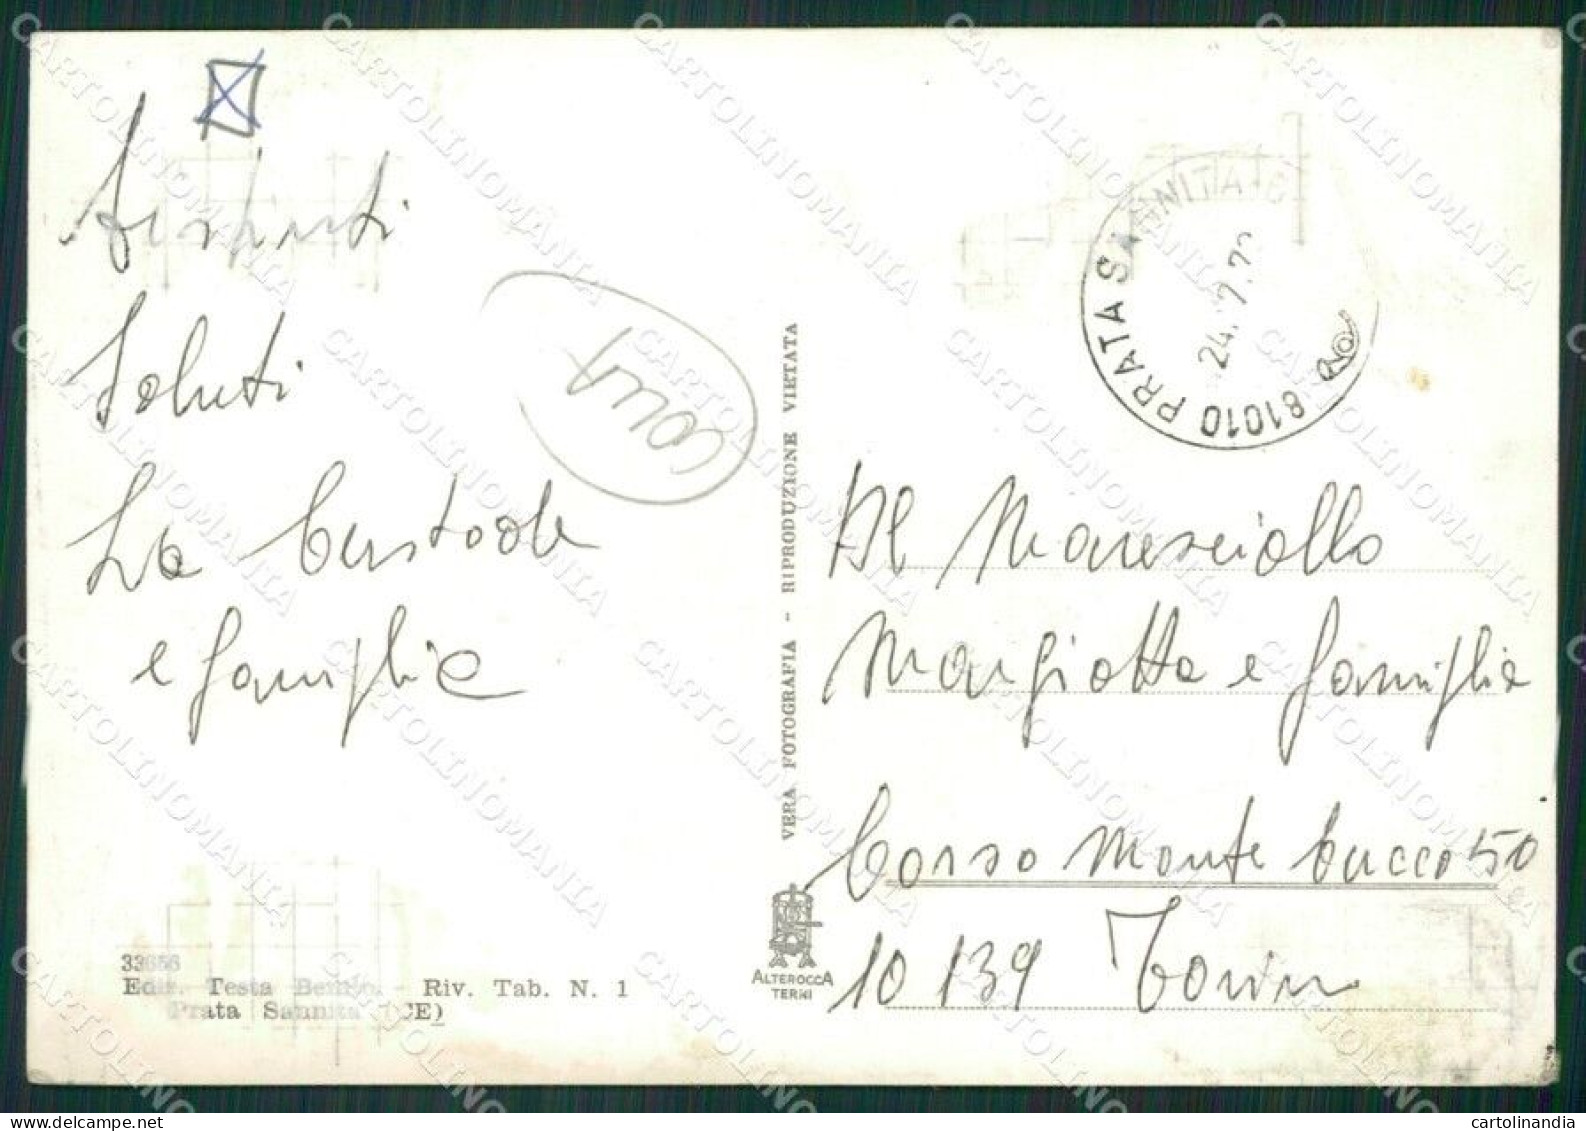 Saluti
La Custode
e famiglia
Al Maresciallo
Margiotta e famiglia
Corso Monte Cucco 50
10139 Torino
81010 PRATA SANNITA
24.7.7
VERA FOTOGRAFIA - RIPRODUZIONE VIETATA
ALTEROCCA
TERNI
33656
Ediz. Testa - Riv. Tab. N. 1
Prata Sannita (CE)
CARTOLINOMANIA
cartolinandia